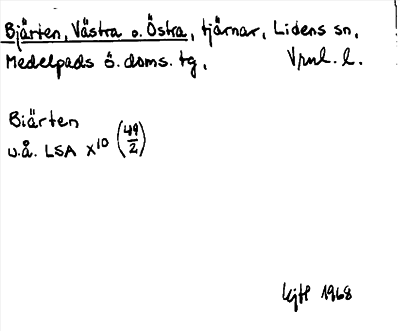 Bjärten, Västra o. Östra, tjärnar, Lidens sn,
Medelpads ö. doms. tg, Vrml. l.
Biärten
u.å. LSA X¹⁰ (49/2)
1968